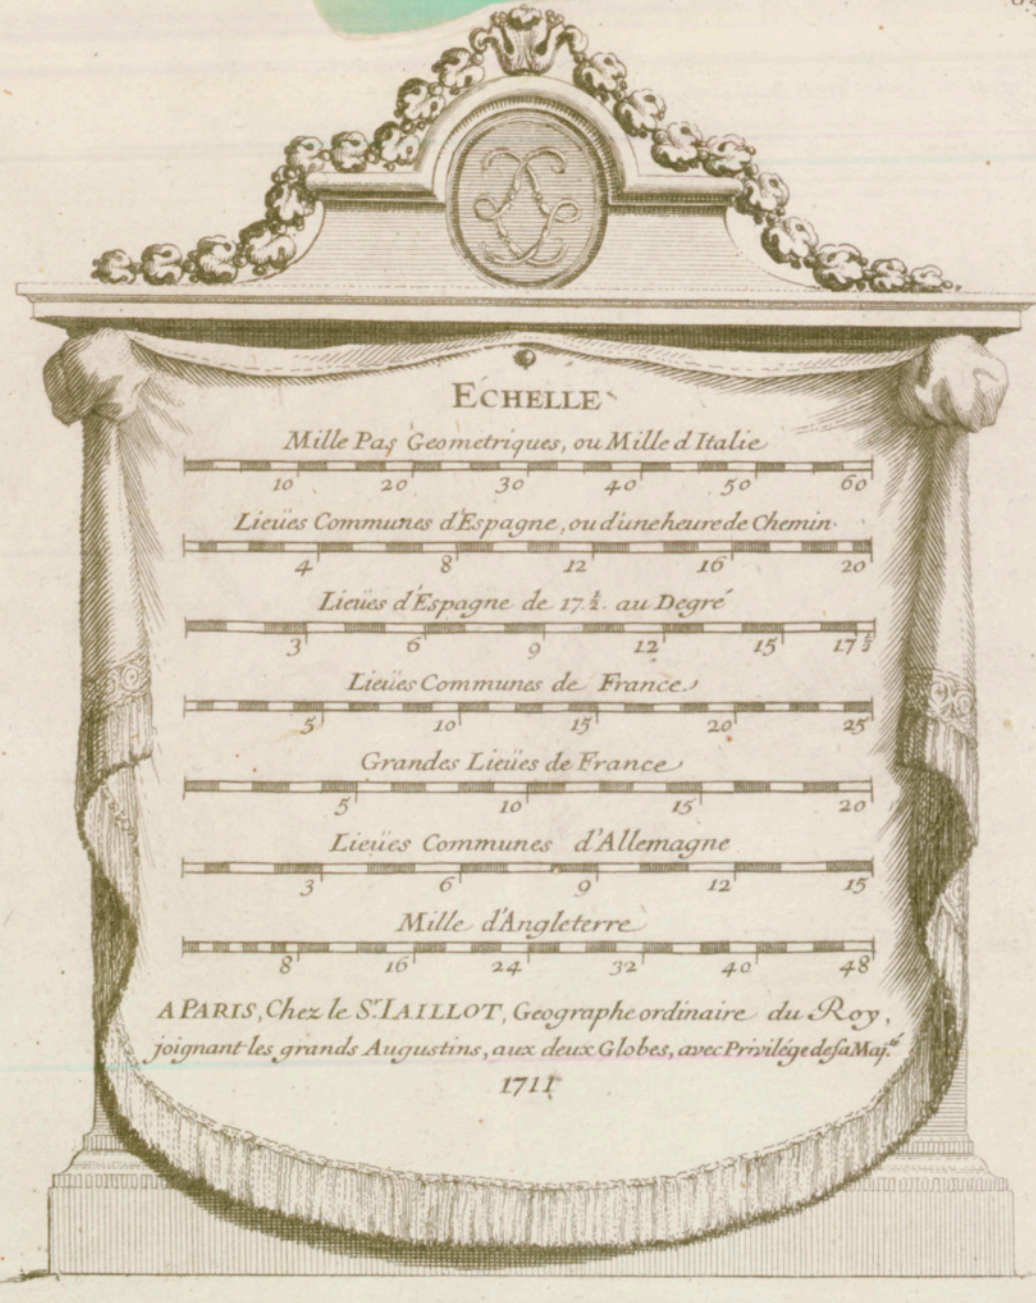 ECHELLE
Mille Pas Geometriques, ou Mille d'Italie
10 20 30 40 50 60
Lieües Communes d'Espagne, ou d'une heure de Chemin.
4 8 12 16 20
Lieües d'Espagne de 17.½. au Degré
3 6 9 12 15 17½
Lieües Communes de France.
5 10 15 20 25
Grandes Lieües de France
5 10 15 20
Lieües Communes d'Allemagne
3 6 9 12 15
Mille d'Angleterre
8 16 24 32 40 48
A PARIS, Chez le S.r IAILLOT, Geographe ordinaire du Roy,
joignant les grands Augustins, aux deux Globes, avec Privilége de sa Maj.té
1711